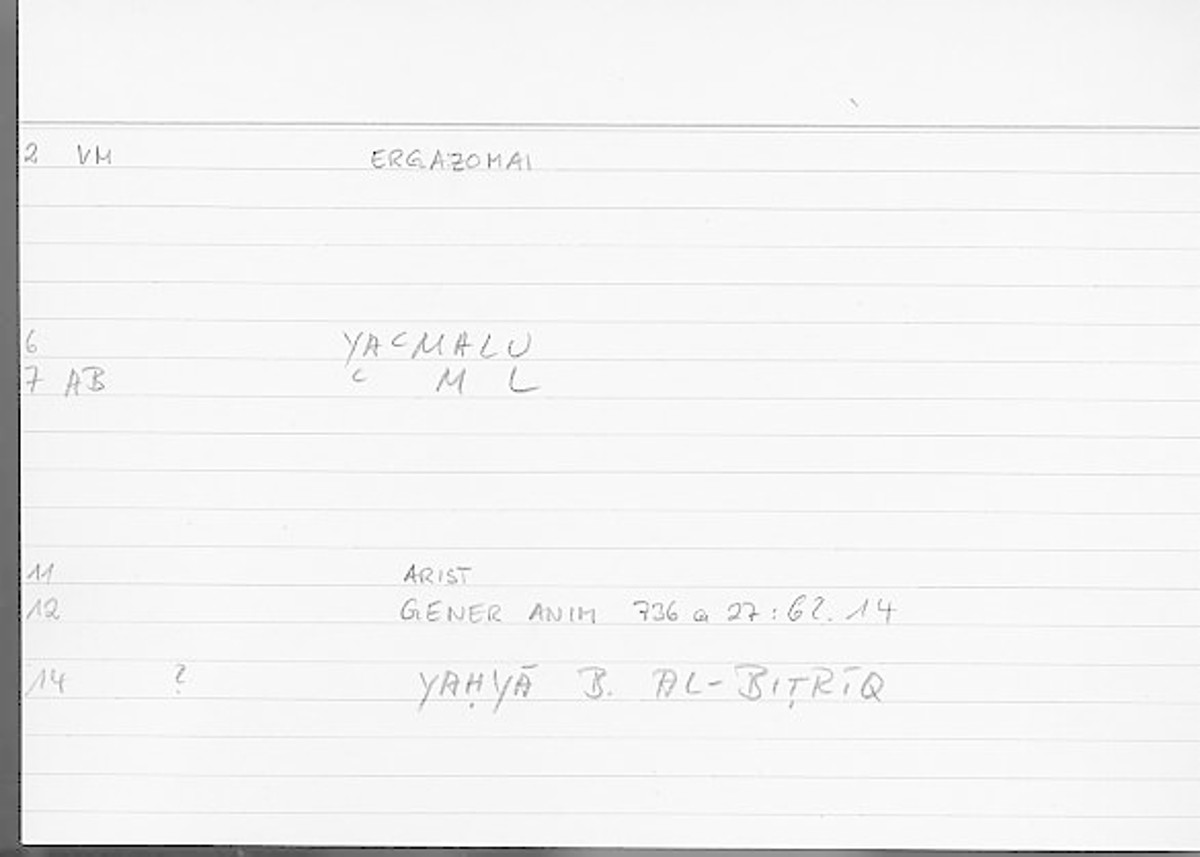 2 VM ERGAZOMAI
6 YACMALU
7 AB C M L
11 ARIST
12 GENER ANIM 736 a 27 : 62. 14
14 ? YAḤYĀ B. AL-BIṬRĪQ